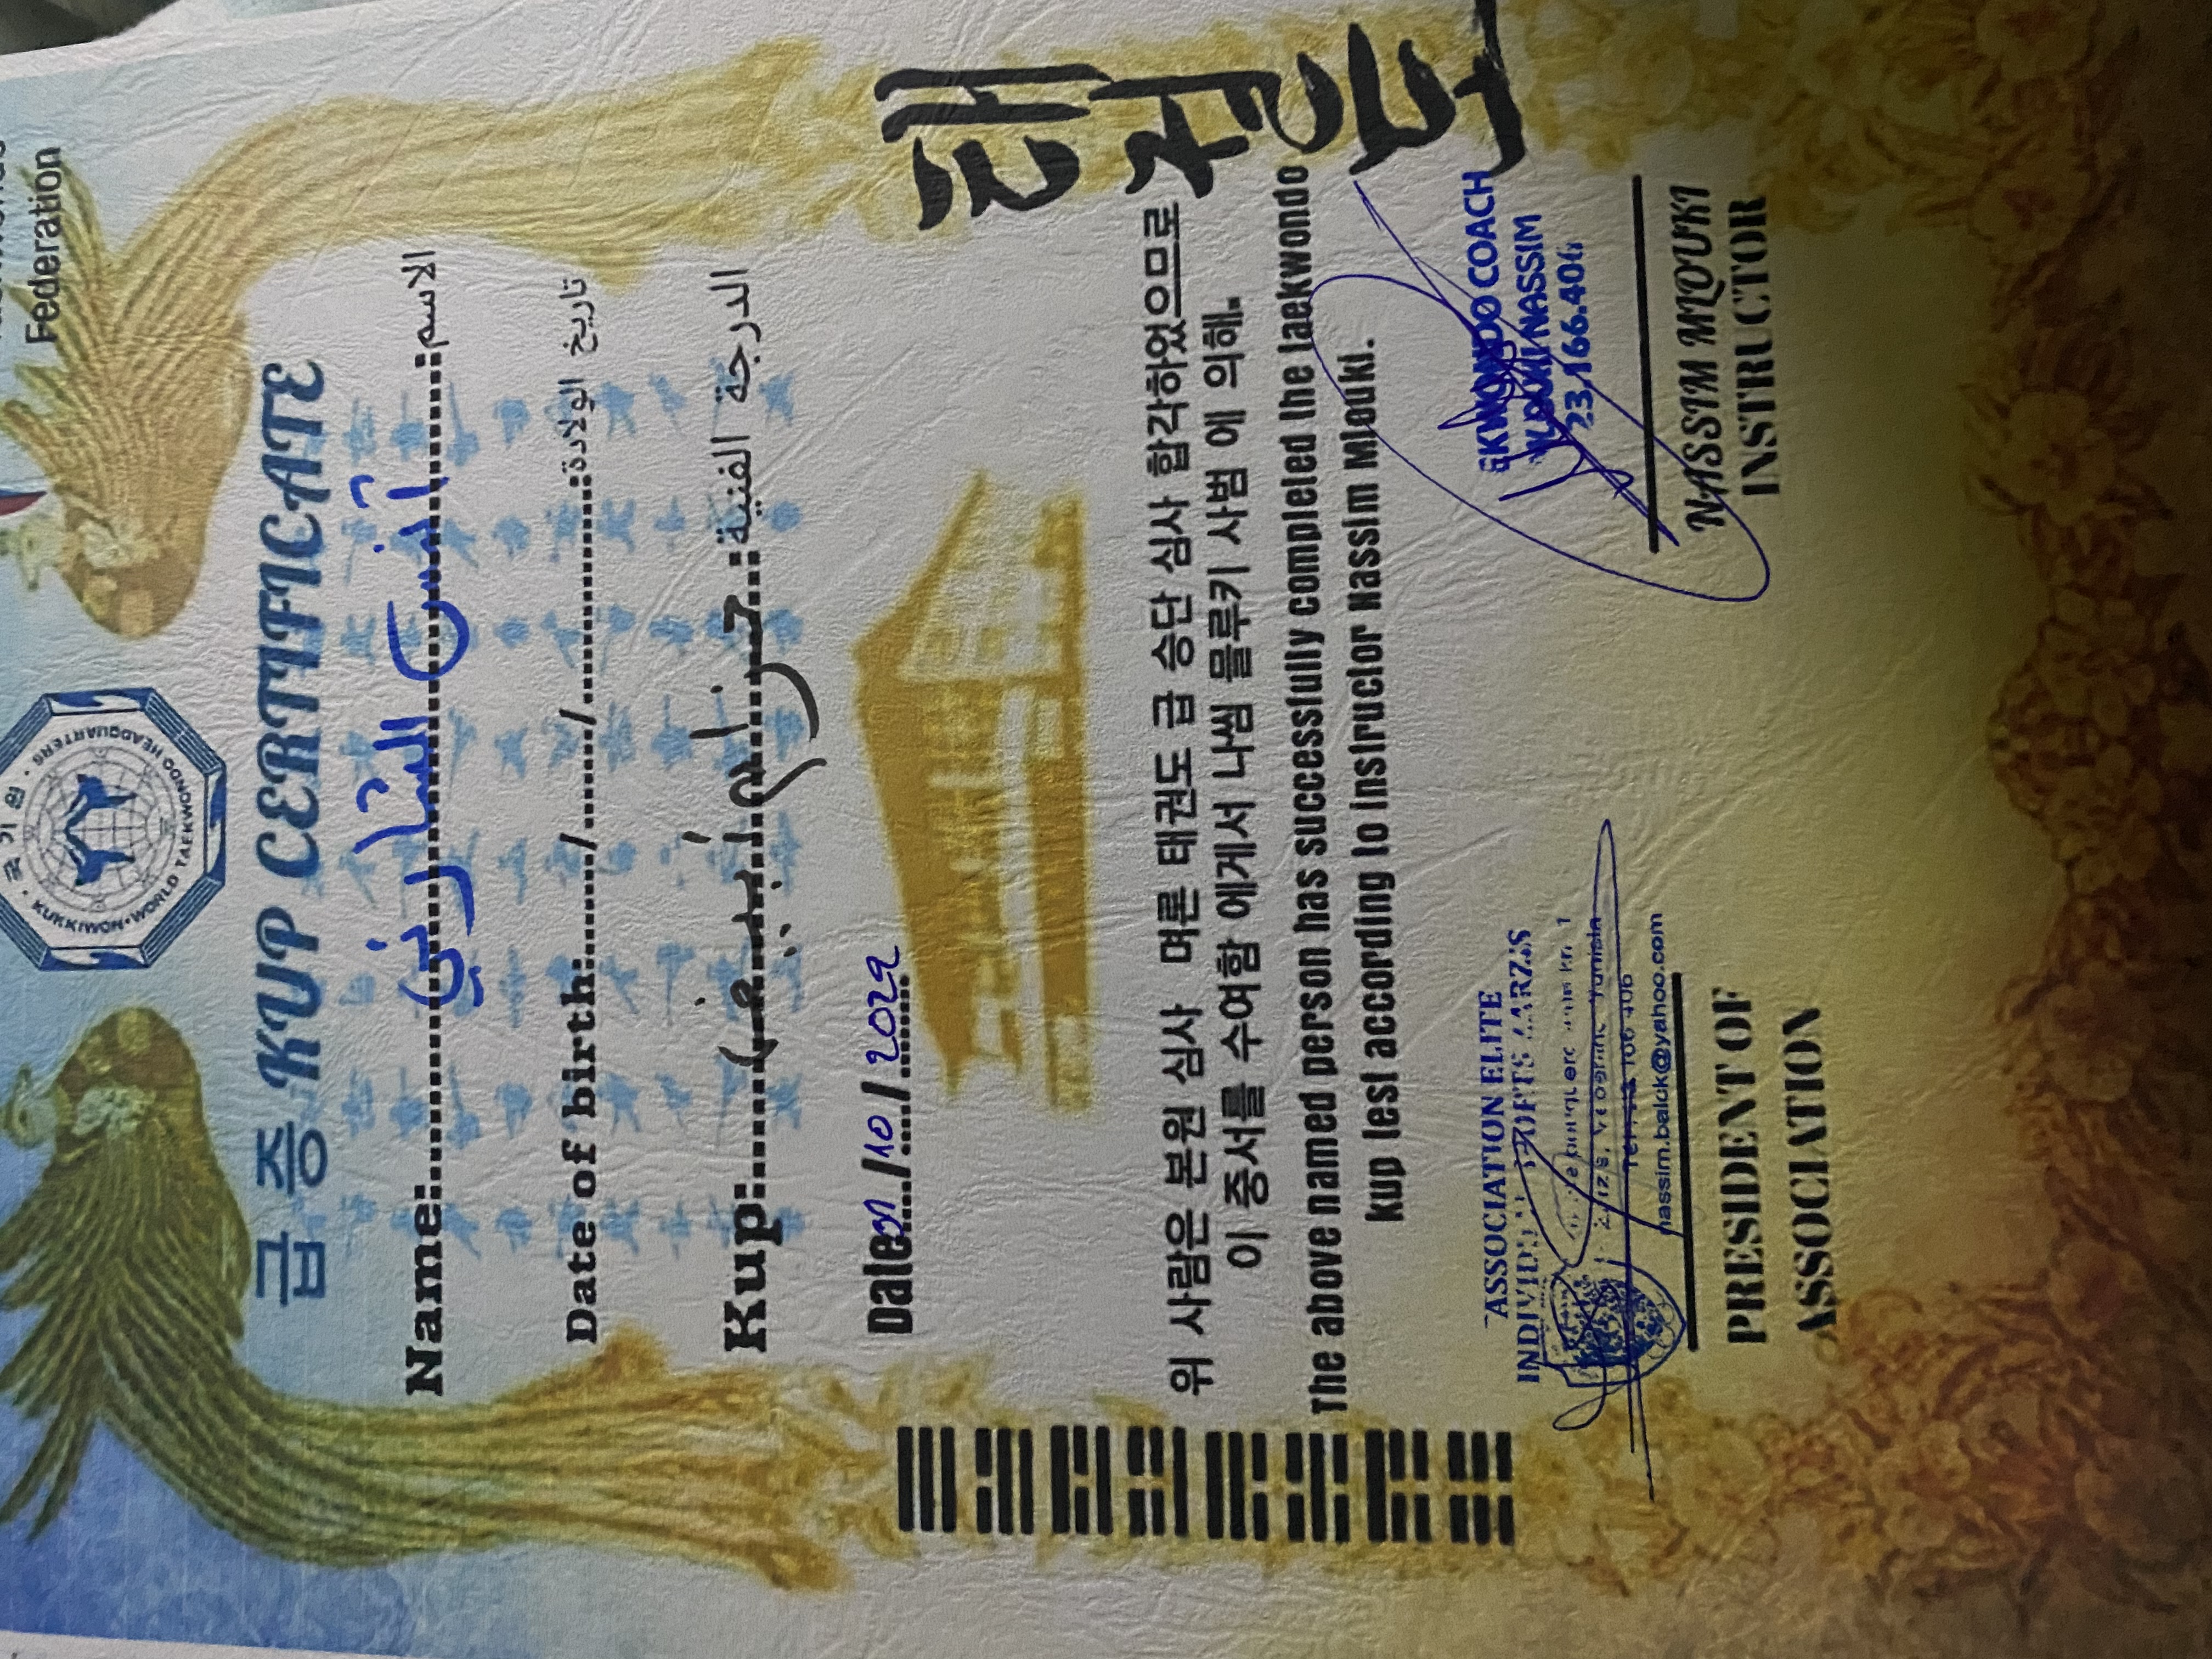 Federation
국기원
KUKKIWON • WORLD TAEKWONDO HEADQUARTERS
급 증 KUP CERTIFICATE
Name: أنس الشارني الاسم:
Date of birth:....../......./............ تاريخ الولادة:
Kup: حزام أبيض الدرجة الفنية:
Date /10/2022
태권도
위 사람은 본원 심사 며론 태권도 급 승단 심사 합각하였으므로
이 증서를 수여함 에게서 나씸 믈루키 사범 에 의해.
The above named person has successfully completed the taekwondo
kup test according to instructor Nassim Mlouki.
ASSOCIATION ELITE
nassim.balck@yahoo.com
PRESIDENT OF
ASSOCIATION
COACH
NASSIM
23.166.406
NASSIM MLOUKI
INSTRUCTOR